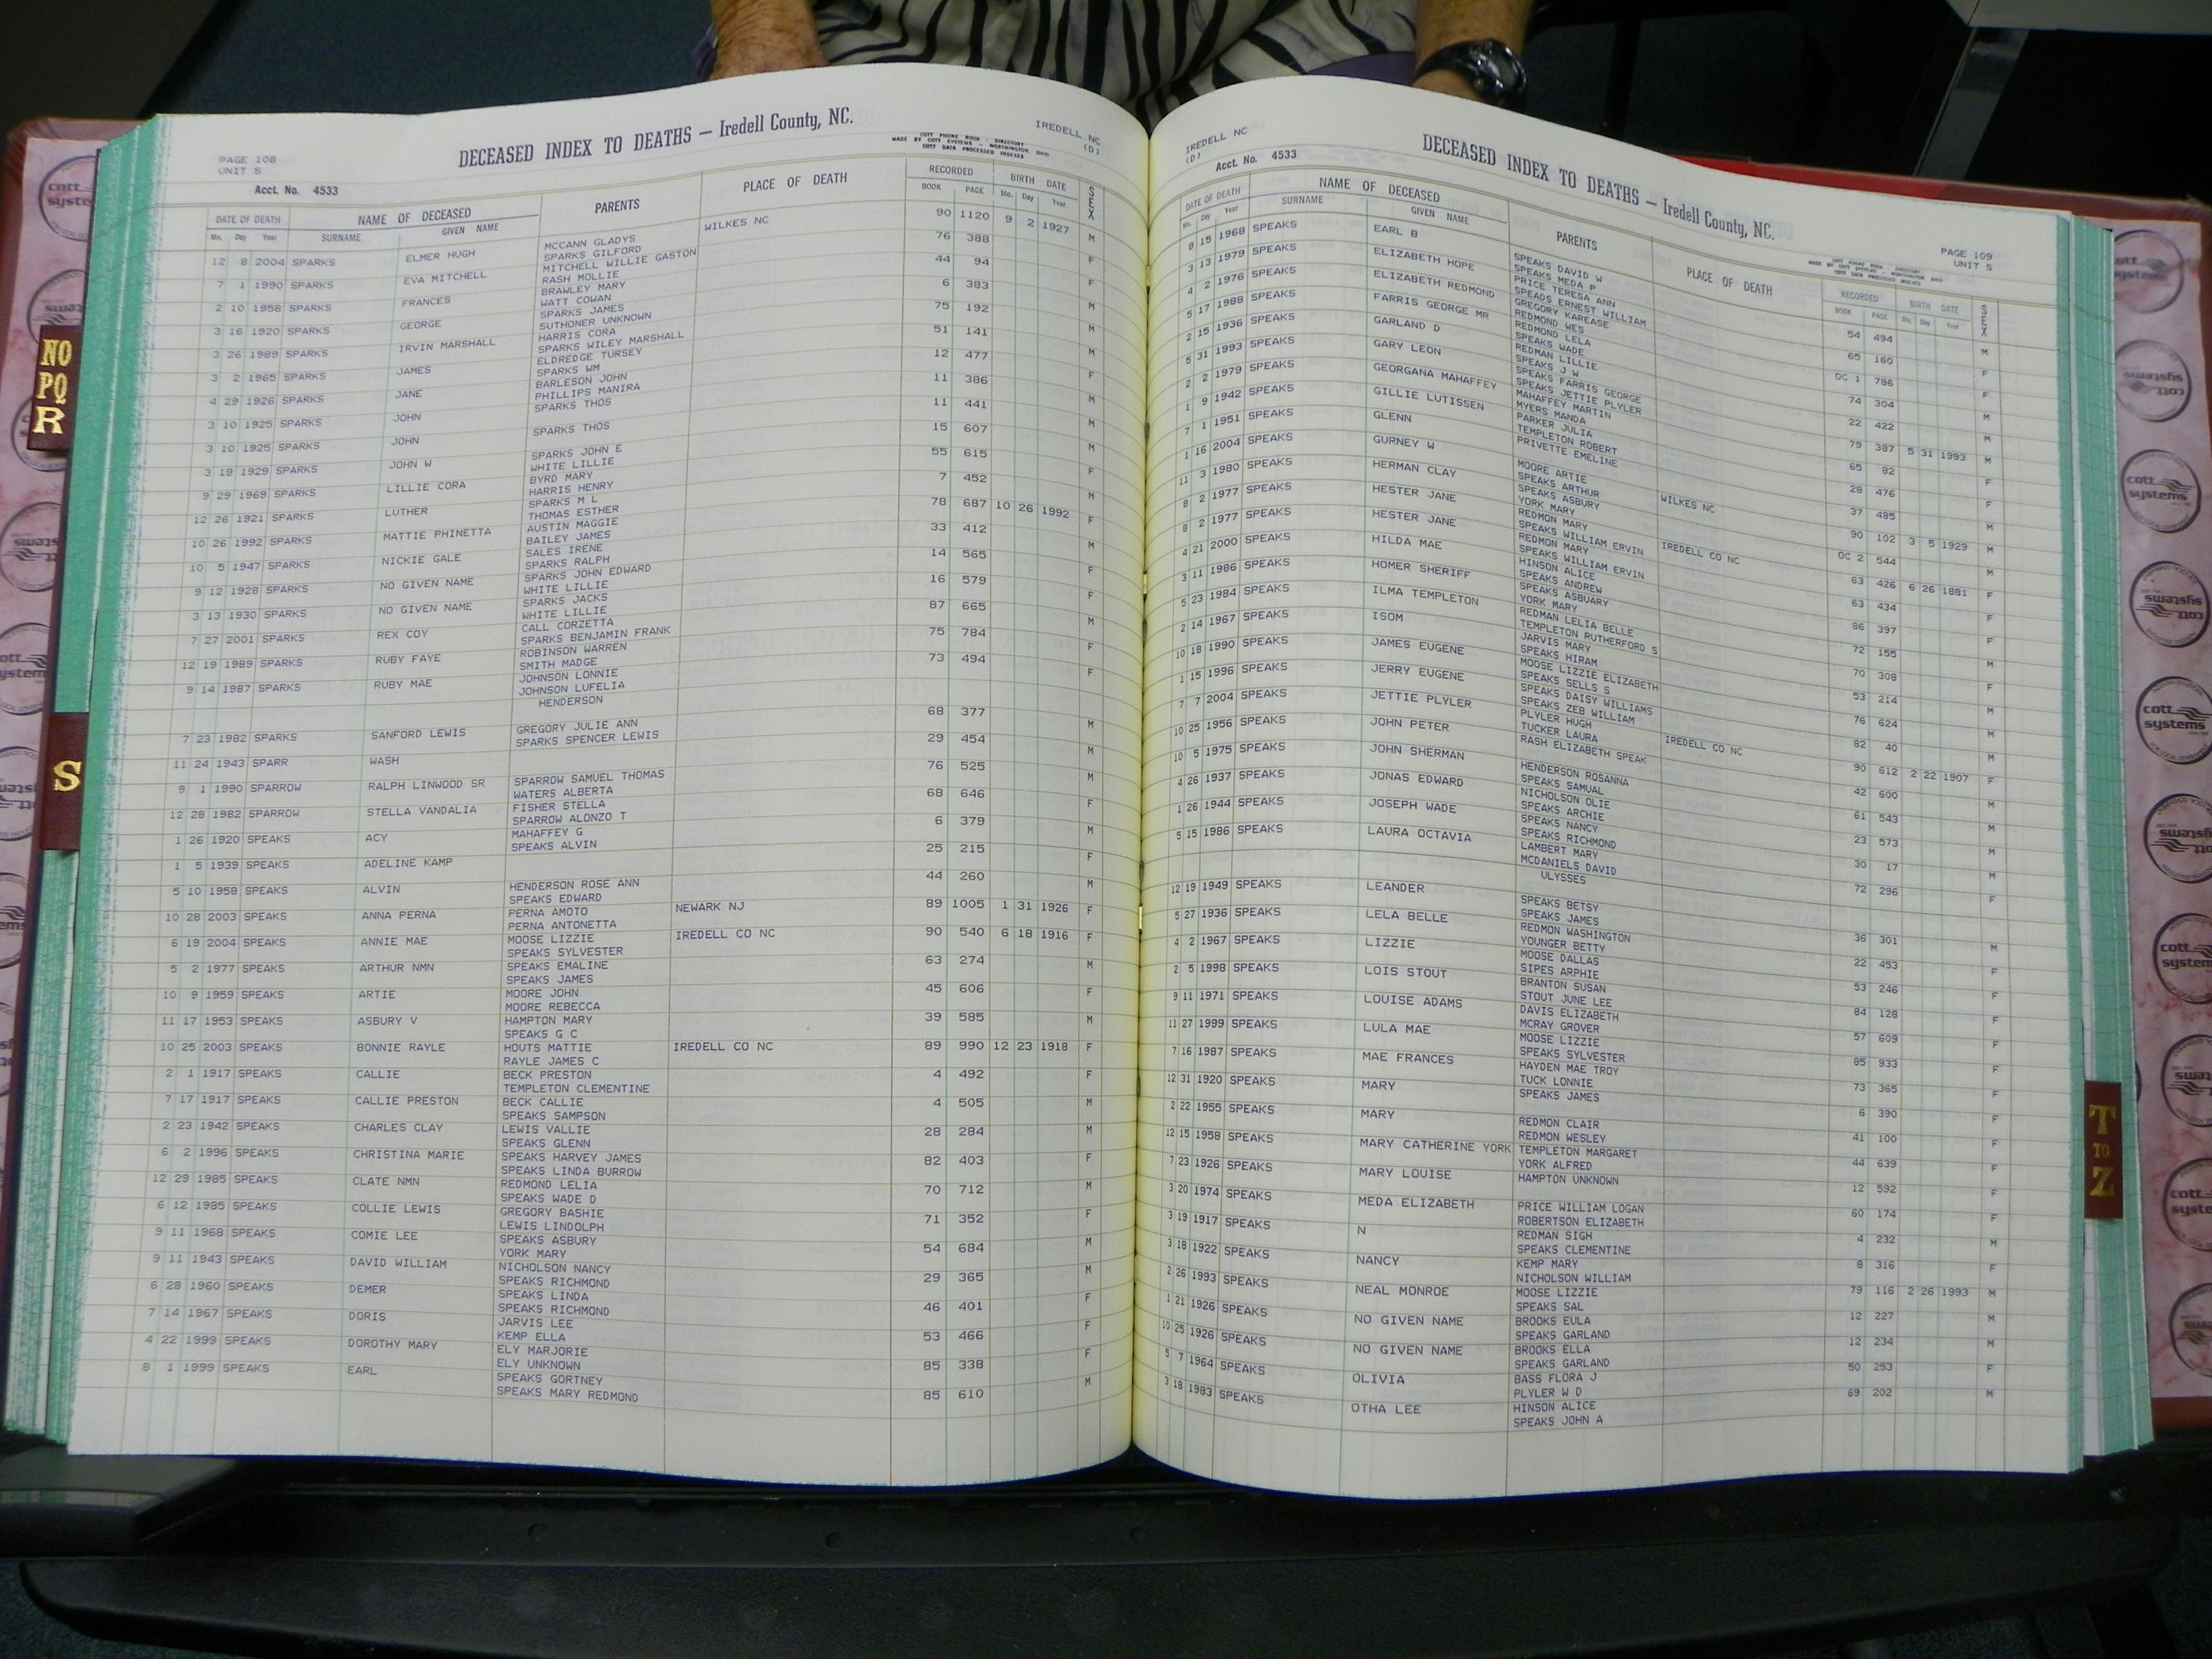 NO
PQ
R
S
T
TO
Z
cott systems
PAGE 108
UNIT S
DECEASED INDEX TO DEATHS — Iredell County, NC.
COTT PHONE BOOK - DIRECTORY
MADE BY COTT SYSTEMS - WORTHINGTON, OHIO
COTT DATA PROCESSED INDEXES
IREDELL NC
(D)
Acct. No. 4533
DATE OF DEATH NAME OF DECEASED PARENTS PLACE OF DEATH RECORDED BIRTH DATE SEX
Mo. Day Year SURNAME GIVEN NAME BOOK PAGE Mo. Day Year
12 8 2004 SPARKS ELMER HUGH MCCANN GLADYS WILKES NC 90 1120 9 2 1927 M
SPARKS GILFORD
7 1 1990 SPARKS EVA MITCHELL MITCHELL WILLIE GASTON 76 388 F
RASH MOLLIE
2 10 1958 SPARKS FRANCES BRAWLEY MARY 44 94 F
WATT COWAN
3 16 1920 SPARKS GEORGE SPARKS JAMES 6 383 M
SUTHONER UNKNOWN
3 26 1989 SPARKS IRVIN MARSHALL HARRIS CORA 75 192 M
SPARKS WILEY MARSHALL
3 2 1965 SPARKS JAMES ELDREDGE TURSEY 51 141 M
SPARKS WM
4 29 1926 SPARKS JANE BARLESON JOHN 12 477 F
PHILLIPS MANIRA
3 10 1925 SPARKS JOHN SPARKS THOS 11 386 M
3 10 1925 SPARKS JOHN SPARKS THOS 11 441 M
3 19 1929 SPARKS JOHN W SPARKS JOHN E 15 607 M
WHITE LILLIE
9 29 1969 SPARKS LILLIE CORA BYRD MARY 55 615 F
HARRIS HENRY
12 26 1921 SPARKS LUTHER SPARKS M L 7 452 M
THOMAS ESTHER
10 26 1992 SPARKS MATTIE PHINETTA AUSTIN MAGGIE 78 687 10 26 1992 F
BAILEY JAMES
10 5 1947 SPARKS NICKIE GALE SALES IRENE 33 412 M
SPARKS RALPH
9 12 1928 SPARKS NO GIVEN NAME SPARKS JOHN EDWARD 14 565 F
WHITE LILLIE
3 13 1930 SPARKS NO GIVEN NAME SPARKS JACKS 16 579 F
WHITE LILLIE
7 27 2001 SPARKS REX COY CALL CORZETTA 87 665 M
SPARKS BENJAMIN FRANK
12 19 1989 SPARKS RUBY FAYE ROBINSON WARREN 75 784 F
SMITH MADGE
9 14 1987 SPARKS RUBY MAE JOHNSON LONNIE 73 494 F
JOHNSON LUFELIA
HENDERSON
7 23 1982 SPARKS SANFORD LEWIS GREGORY JULIE ANN 68 377 M
SPARKS SPENCER LEWIS
11 24 1943 SPARR WASH 29 454 M
9 1 1990 SPARROW RALPH LINWOOD SR SPARROW SAMUEL THOMAS 76 525 M
WATERS ALBERTA
12 28 1982 SPARROW STELLA VANDALIA FISHER STELLA 68 646 F
SPARROW ALONZO T
1 26 1920 SPEAKS ACY MAHAFFEY G 6 379 M
SPEAKS ALVIN
1 5 1939 SPEAKS ADELINE KAMP 25 215 F
5 10 1958 SPEAKS ALVIN HENDERSON ROSE ANN 44 260 M
SPEAKS EDWARD
10 28 2003 SPEAKS ANNA PERNA PERNA AMOTO NEWARK NJ 89 1005 1 31 1926 F
PERNA ANTONETTA
6 19 2004 SPEAKS ANNIE MAE MOOSE LIZZIE IREDELL CO NC 90 540 6 18 1916 F
SPEAKS SYLVESTER
5 2 1977 SPEAKS ARTHUR NMN SPEAKS EMALINE 63 274 M
SPEAKS JAMES
10 9 1959 SPEAKS ARTIE MOORE JOHN 45 606 F
MOORE REBECCA
11 17 1953 SPEAKS ASBURY V HAMPTON MARY 39 585 M
SPEAKS G C
10 25 2003 SPEAKS BONNIE RAYLE HOUTS MATTIE IREDELL CO NC 89 990 12 23 1918 F
RAYLE JAMES C
2 1 1917 SPEAKS CALLIE BECK PRESTON 4 492 F
TEMPLETON CLEMENTINE
7 17 1917 SPEAKS CALLIE PRESTON BECK CALLIE 4 505 M
SPEAKS SAMPSON
2 23 1942 SPEAKS CHARLES CLAY LEWIS VALLIE 28 284 M
SPEAKS GLENN
6 2 1996 SPEAKS CHRISTINA MARIE SPEAKS HARVEY JAMES 82 403 F
SPEAKS LINDA BURROW
12 29 1985 SPEAKS CLATE NMN REDMOND LELIA 70 712 M
SPEAKS WADE D
6 12 1985 SPEAKS COLLIE LEWIS GREGORY BASHIE 71 352 F
LEWIS LINDOLPH
9 11 1968 SPEAKS COMIE LEE SPEAKS ASBURY 54 684 M
YORK MARY
9 11 1943 SPEAKS DAVID WILLIAM NICHOLSON NANCY 29 365 M
SPEAKS RICHMOND
6 28 1960 SPEAKS DEMER SPEAKS LINDA 46 401 F
SPEAKS RICHMOND
7 14 1967 SPEAKS DORIS JARVIS LEE 53 466 F
KEMP ELLA
4 22 1999 SPEAKS DOROTHY MARY ELY MARJORIE 85 338 F
ELY UNKNOWN
8 1 1999 SPEAKS EARL SPEAKS GORTNEY 85 610 M
SPEAKS MARY REDMOND
IREDELL NC
(D)
DECEASED INDEX TO DEATHS — Iredell County, NC.
COTT PHONE BOOK - DIRECTORY
MADE BY COTT SYSTEMS - WORTHINGTON, OHIO
COTT DATA PROCESSED INDEXES
PAGE 109
UNIT S
Acct. No. 4533
DATE OF DEATH NAME OF DECEASED PARENTS PLACE OF DEATH RECORDED BIRTH DATE SEX
Mo. Day Year SURNAME GIVEN NAME BOOK PAGE Mo. Day Year
8 15 1968 SPEAKS EARL B SPEAKS DAVID W 54 494 M
SPEAKS MEDA P
3 13 1979 SPEAKS ELIZABETH HOPE PRICE TERESA ANN 65 160 F
SPEADS ERNEST WILLIAM
4 2 1976 SPEAKS ELIZABETH REDMOND GREGORY KAREASE OC 1 786 F
REDMOND WES
5 17 1988 SPEAKS FARRIS GEORGE MR REDMOND LELA 74 304 M
SPEAKS WADE
2 15 1936 SPEAKS GARLAND D REDMAN LILLIE 22 422 M
SPEAKS J W
5 31 1993 SPEAKS GARY LEON SPEAKS FARRIS GEORGE 79 387 5 31 1993 M
SPEAKS JETTIE PLYLER
2 2 1979 SPEAKS GEORGANA MAHAFFEY MAHAFFEY MARTIN 65 82 F
MYERS MANDA
1 9 1942 SPEAKS GILLIE LUTISSEN PARKER JULIA 28 476 F
TEMPLETON ROBERT
7 1 1951 SPEAKS GLENN PRIVETTE EMELINE 37 485 M
1 16 2004 SPEAKS GURNEY W MOORE ARTIE WILKES NC 90 102 3 5 1929 M
SPEAKS ARTHUR
11 3 1980 SPEAKS HERMAN CLAY SPEAKS ASBURY OC 2 544 M
YORK MARY
8 2 1977 SPEAKS HESTER JANE REDMON MARY IREDELL CO NC 63 426 6 26 1881 F
SPEAKS WILLIAM ERVIN
8 2 1977 SPEAKS HESTER JANE REDMON MARY 63 434 F
SPEAKS WILLIAM ERVIN
4 21 2000 SPEAKS HILDA MAE HINSON ALICE 86 397 F
SPEAKS ANDREW
3 11 1986 SPEAKS HOMER SHERIFF SPEAKS ASBUARY 72 155 M
YORK MARY
5 23 1984 SPEAKS ILMA TEMPLETON REDMAN LELIA BELLE 70 308 F
TEMPLETON RUTHERFORD S
2 14 1967 SPEAKS ISOM JARVIS MARY 53 214 M
SPEAKS HIRAM
10 18 1990 SPEAKS JAMES EUGENE MOOSE LIZZIE ELIZABETH 76 624 M
SPEAKS SELLS S
1 15 1996 SPEAKS JERRY EUGENE SPEAKS DAISY WILLIAMS 82 40 M
SPEAKS ZEB WILLIAM
7 7 2004 SPEAKS JETTIE PLYLER PLYLER HUGH IREDELL CO NC 90 612 2 22 1907 F
TUCKER LAURA
10 25 1956 SPEAKS JOHN PETER RASH ELIZABETH SPEAK 42 600 M
10 5 1975 SPEAKS JOHN SHERMAN HENDERSON ROSANNA 61 543 M
SPEAKS SAMUAL
4 26 1937 SPEAKS JONAS EDWARD NICHOLSON OLIE 23 573 M
SPEAKS ARCHIE
1 26 1944 SPEAKS JOSEPH WADE SPEAKS NANCY 30 17 M
SPEAKS RICHMOND
5 15 1986 SPEAKS LAURA OCTAVIA LAMBERT MARY 72 296 F
MCDANIELS DAVID
ULYSSES
12 19 1949 SPEAKS LEANDER SPEAKS BETSY 36 301 M
SPEAKS JAMES
5 27 1936 SPEAKS LELA BELLE REDMON WASHINGTON 22 453 F
YOUNGER BETTY
4 2 1967 SPEAKS LIZZIE MOOSE DALLAS 53 246 F
SIPES ARPHIE
2 5 1998 SPEAKS LOIS STOUT BRANTON SUSAN 84 128 F
STOUT JUNE LEE
9 11 1971 SPEAKS LOUISE ADAMS DAVIS ELIZABETH 57 609 F
MCRAY GROVER
11 27 1999 SPEAKS LULA MAE MOOSE LIZZIE 85 933 F
SPEAKS SYLVESTER
7 16 1987 SPEAKS MAE FRANCES HAYDEN MAE TROY 73 365 F
TUCK LONNIE
12 31 1920 SPEAKS MARY SPEAKS JAMES 6 390 F
2 22 1955 SPEAKS MARY REDMON CLAIR 41 100 F
REDMON WESLEY
12 15 1958 SPEAKS MARY CATHERINE YORK TEMPLETON MARGARET 44 639 F
YORK ALFRED
7 23 1926 SPEAKS MARY LOUISE HAMPTON UNKNOWN 12 592 F
3 20 1974 SPEAKS MEDA ELIZABETH PRICE WILLIAM LOGAN 60 174 F
ROBERTSON ELIZABETH
3 19 1917 SPEAKS N REDMAN SIGH 4 232 M
SPEAKS CLEMENTINE
3 18 1922 SPEAKS NANCY KEMP MARY 8 316 F
NICHOLSON WILLIAM
2 26 1993 SPEAKS NEAL MONROE MOOSE LIZZIE 79 116 2 26 1993 M
SPEAKS SAL
1 21 1926 SPEAKS NO GIVEN NAME BROOKS EULA 12 227 M
SPEAKS GARLAND
10 25 1926 SPEAKS NO GIVEN NAME BROOKS ELLA 12 234 M
SPEAKS GARLAND
5 7 1964 SPEAKS OLIVIA BASS FLORA J 50 253 F
PLYLER W D
3 18 1983 SPEAKS OTHA LEE HINSON ALICE 69 202 M
SPEAKS JOHN A